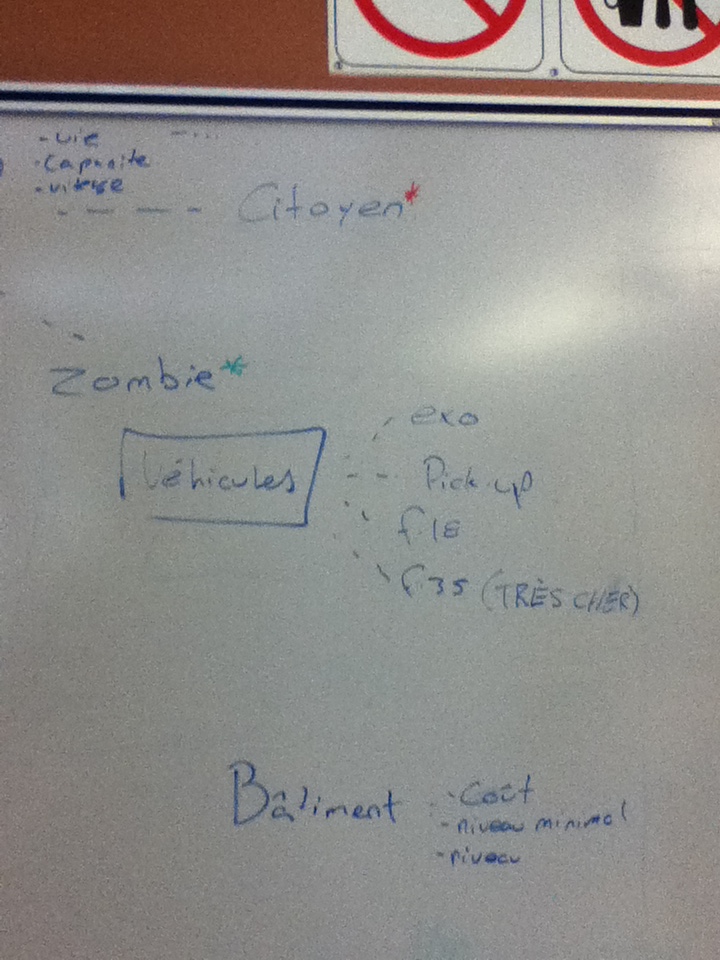 -vie
-Capacite
-vitesse
Citoyen*
Zombie*
Véhicules
exo
Pick up
f.18
f.35 (TRÈS CHER)
Bâtiment
-Coût
-niveau minimal
-niveau